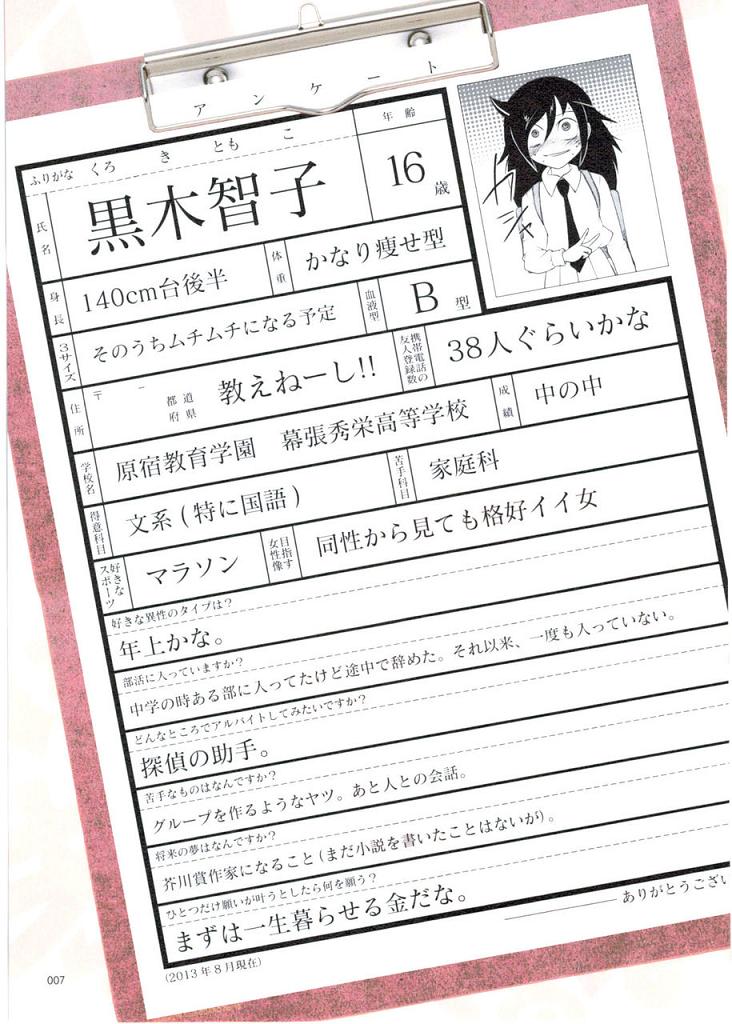 アンケート
ふりがな くろ き とも こ
氏名 黒木智子
年齢 16 歳
身長 140cm台後半
体重 かなり痩せ型
3サイズ そのうちムチムチになる予定
血液型 B 型
住所 〒 － 都道府県 教えねーし!!
携帯電話の友人登録数 38人ぐらいかな
学校名 原宿教育学園 幕張秀栄高等学校
成績 中の中
得意科目 文系(特に国語)
苦手科目 家庭科
好きなスポーツ マラソン
目指す女性像 同性から見ても格好イイ女
好きな異性のタイプは?
年上かな。
部活に入っていますか?
中学の時ある部に入ってたけど途中で辞めた。それ以来、一度も入っていない。
どんなところでアルバイトしてみたいですか?
探偵の助手。
苦手なものはなんですか?
グループを作るようなヤツ。あと人との会話。
将来の夢はなんですか?
芥川賞作家になること(まだ小説を書いたことはないが)。
ひとつだけ願いが叶うとしたら何を願う?
まずは一生暮らせる金だな。
ありがとうござい
(2013年8月現在)
007